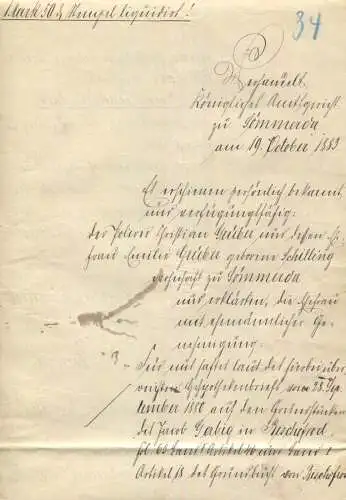 1 Mark 50 d Stempel liquidirt!
34
Verhandelt
Königliches Amtsgericht
zu Sömmerda
am 19. October 1883
Es erschienen persönlich bekannt
und verfügungsfähig:
der Christian Grübe und dessen Ehe
frau Emilie Grübe geborene Schilling
zu Sömmerda
und erklärten, die Ehefrau
mit ehemännlicher Ge-
nehmigung:
Für mich haftet laut des hierbei über
reichten Hypothekenbriefs vom 28. Sep
tember 1880 auf den Grundstücken
des Jacob in
Artikel und Band 1
Artikel des Grundbuchs von